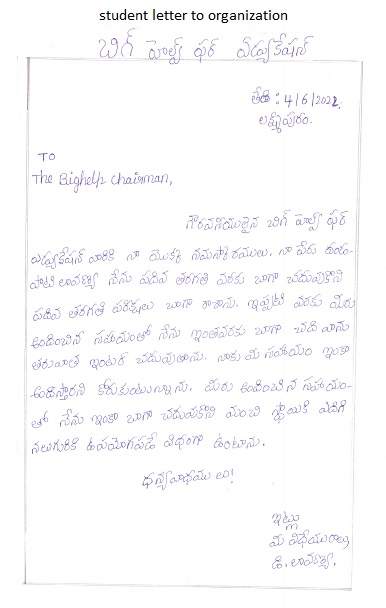 student letter to organization
బిగ్ హెల్ప్ ఫర్ ఎడ్యుకేషన్
తేది : 4/6/2022.
లక్ష్మీపురం.
TO
The Bighelp chairman,
గౌరవనీయులైన బిగ్ హెల్ప్ ఫర్
ఎడ్యుకేషన్ వారికి నా యొక్క నమస్కారములు. నా పేరు
లావణ్య నేను పదివ తరగతి వరకు బాగా చదువుకొని
పదివ తరగతి పరీక్షలు బాగా రాశాను. ఇప్పటి వరకు మీరు
అందించిన సహాయంతో నేను ఇంతవరకు బాగా చదివాను
తరువాత ఇంటర్ చదువుతాను. నాకు మీ సహాయం ఇంకా
అందిస్తారని కోరుకుంటున్నాను. మీరు అందించిన సహాయం-
తో నేను ఇంకా బాగా చదువుకొని మంచి స్థాయికి ఎదిగి
నలుగురికి ఉపయోగపడే విధంగా ఉంటాను.
ధన్యవాదములు!
ఇట్లు
మీ విధేయురాలు,
డి. లావణ్య.